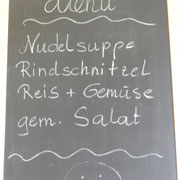 Menü
Nudelsuppe
Rindschnitzel
Reis + Gemüse
gem. Salat